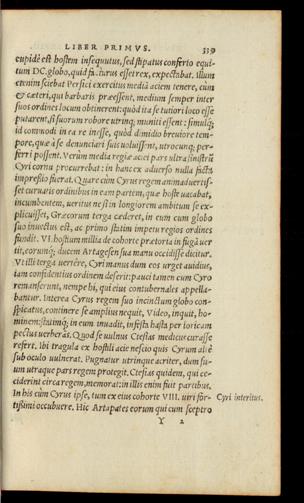 LIBER PRIMVS. 339
cupidè est hostem insequutus, sed stipatus conserto equi-
tum DC. globo, quid facturus esset rex, expectabat. Illum
etenim sciebat Persici exercitus mediā aciem tenere, cum
& cæteri, qui barbaris præessent, medium semper inter
suos ordines locum obtinerent: quòd ita se tutiori loco esse
putarent, si suorum robore utrinq; muniti essent: simulq;
id commodi in ea re inesse, quòd dimidio breuiore tem-
pore, quæ à se denunciari suis uoluissent, utrocunq; per-
ferri possent. Verùm media regia acies pars ultra sinistrū
Cyri cornu procurrebat: in hanc ex aduerso nulla facta
impressio fuerat. Quare cùm Cyrus regem animaduertis-
set curuatis ordinibus in eam partem, quæ hoste uacabat,
incumbentem, ueritus ne si in longiorem ambitum se ex-
plicuisset, Græcorum terga cæderet, in eum cum globo
suo inuectus est, ac primo statim impetu regios ordines
fundit. VI. hostium millia de cohorte prætoria in fugā uer
tit, eorumq; ducem Artagersen sua manu occidisse dicitur.
Vt illi terga uertêre, Cyri manus dum eos urget auidius,
tam confidentius ordinem deserit: pauci tamen cum Cyro
remanserunt, nempe hi, qui eius contubernales appella-
bantur. Interea Cyrus regem suo cinctum globo con-
spicatus, continere se amplius nequit, Video, inquit, ho-
minem: statimq; in eum inuadit, infesta hasta per loricam
pectus uerberās. Quod se uulnus Ctesias medicus curasse
refert. Ibi tragula ex hostili acie nescio quis Cyrum altè
sub oculo uulnerat. Pugnatur utrinque acriter, dum su-
um utraque pars regem protegit. Ctesias quidem, qui ce-
ciderint circa regem, memorat: in illis enim fuit partibus.
In his cùm Cyrus ipse, tum ex eius cohorte VIII. uiri for- Cyri interitus.
tissimi occubuere. Hic Artapates eorum qui cum sceptro
Y 2